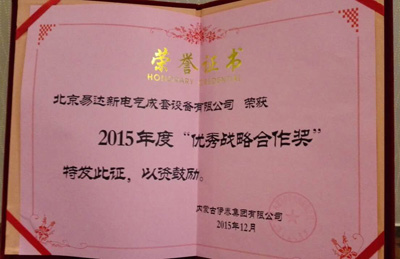 荣誉证书
北京易达新电气成套设备有限公司 荣获
2015年度“优秀战略合作奖”
特发此证，以资鼓励。
内蒙古伊泰集团有限公司
2015年12月